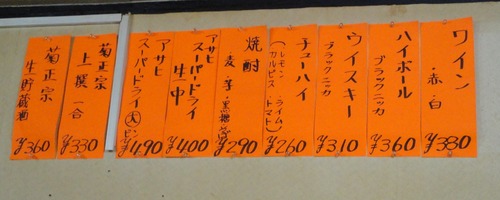 ワイン
・赤・白
¥330
ハイボール
ブラックニッカ
¥360
ウイスキー
ブラックニッカ
¥310
チューハイ
(レモン・ライム)
(カルピス・トマト)
¥260
焼酎
麦・芋・黒糖
¥290
アサヒ
スーパードライ
生中
¥400
アサヒ
スーパードライ
大ビン
¥490
菊正宗
上撰 一合
¥330
菊正宗
生貯蔵酒
¥360